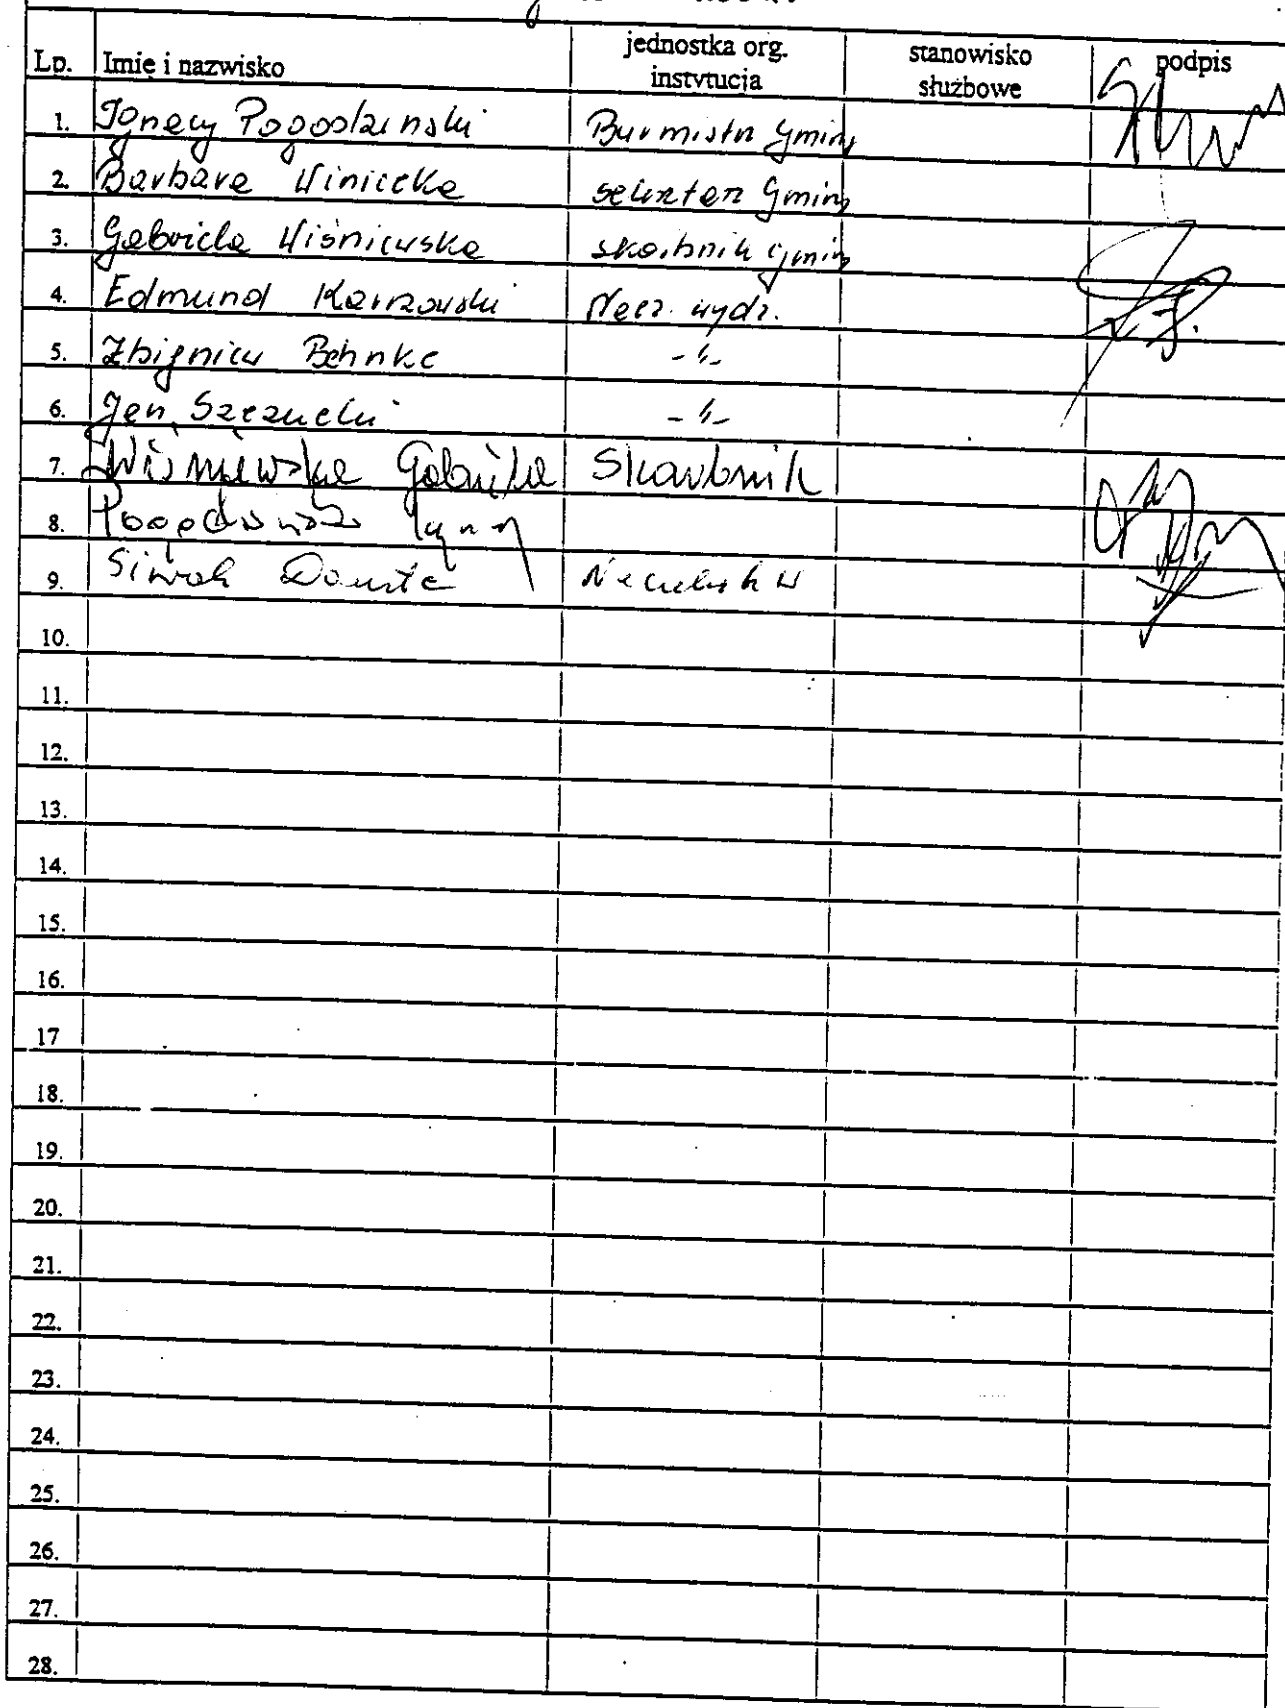 Lp. Imię i nazwisko jednostka org. instytucja stanowisko służbowe podpis
1. Ignacy Pogodziński Burmistrz Gminy
2. Barbara Winiecka sekretarz Gminy
3. Gabriela Wiśniewska skarbnik Gminy
4. Edmund Karzowski Nacz. wydz.
5. Zbigniew Behnke -"-
6. Jan Szczucki -"-
7. Wiśniewska Gabriela Skarbnik
8.
9. Siwak Danuta
10.
11.
12.
13.
14.
15.
16.
17
18.
19.
20.
21.
22.
23.
24.
25.
26.
27.
28.